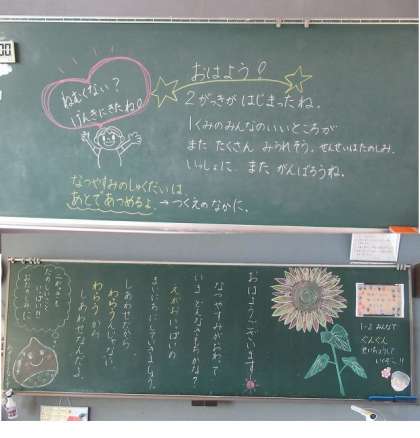 ねむくない？
げんきにきたね！
おはよう！
2がっきが はじまったね。
1くみのみんなのいいところが
また たくさん みられそう。せんせいはたのしみ。
いっしょに、また がんばろうね。
なつやすみのしゅくだいは、
あとであつめるよ。→つくえのなかに。
おはようございます！
なつやすみがおわって
いま、どんなきもちかな？
えがおいっぱいの
まいにちにしていきましょう。
しあわせだから
わらうんじゃない
わらうから
しあわせなんだよ。
1-2 みんなで
ぐんぐん
せいちょうして
いくぞー!!